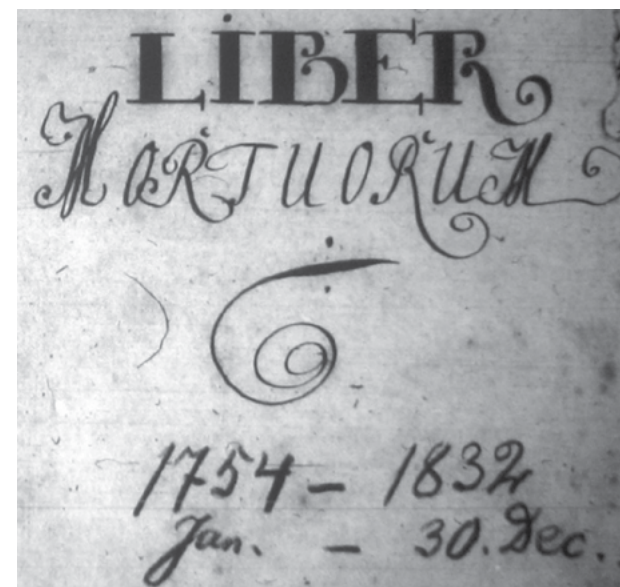 LIBER
MORTUORUM
1754 – 1832
Jan. – 30. Dec.